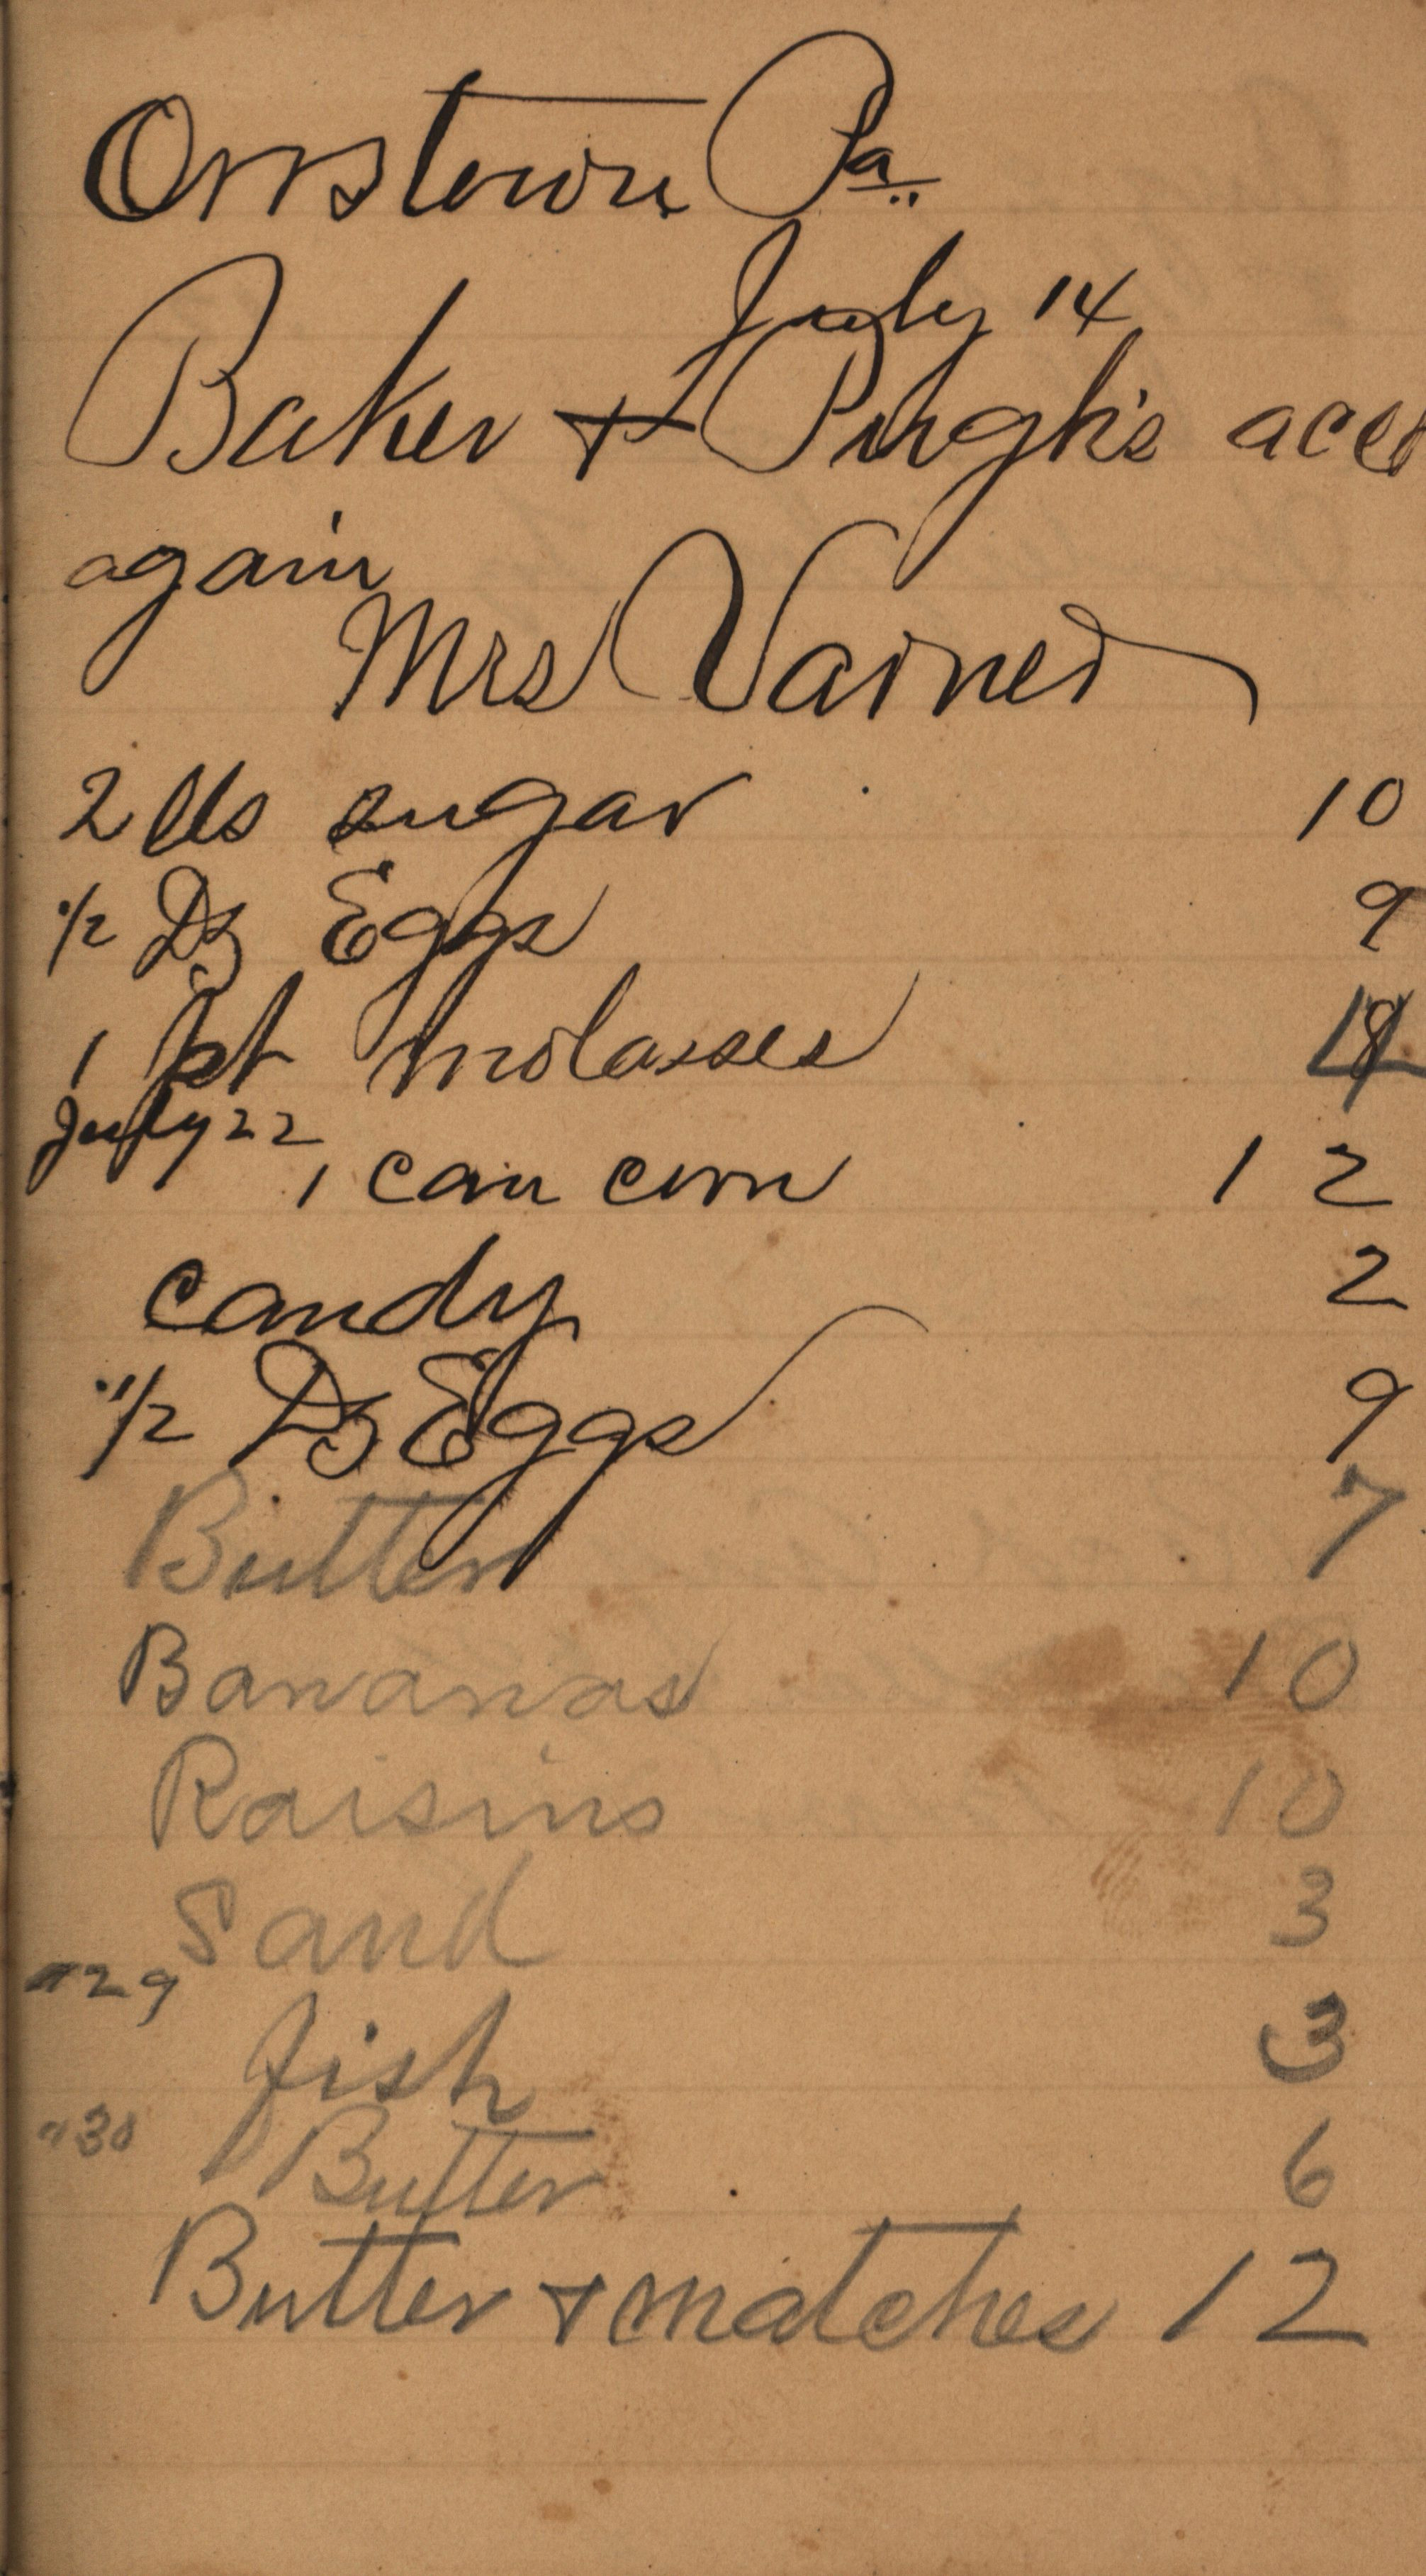 Orrstown Pa..
July 14
Baker + Pugh's acct
again
Mrs Varner
2 lbs sugar 10
1/2 Dz Eggs 9
1 pt molasses
July 22
1 can corn 12
candy 2
1/2 Dz Eggs 9
Butter 7
Bananas 10
Raisins 10
Sand 3
" 29
fish 3
" 30
Butter 6
Butter + matches 12